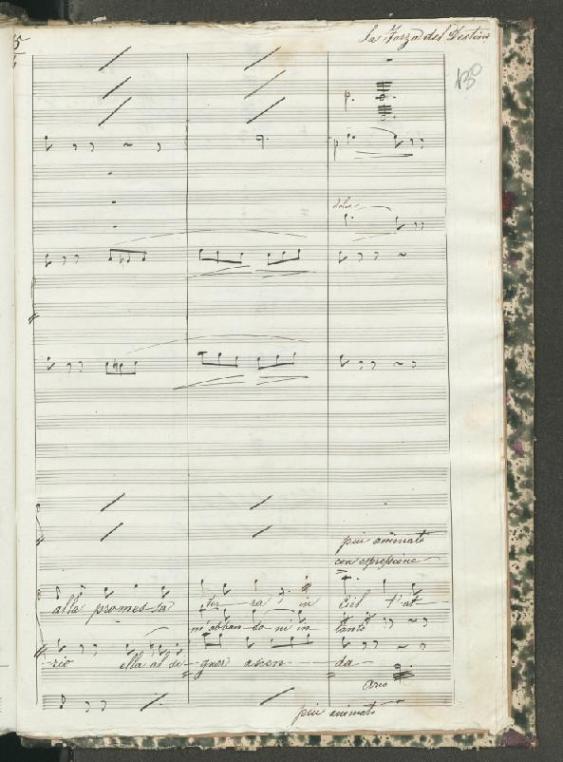 la Forza del Destino
130
p.
p
dolce
più animato
con espressione
alla promes-sa ter-ra in ciel t'at-
m'abban-do-ni in tanto
-rio ella al si-gnor ascen-da-
Arco
più animato